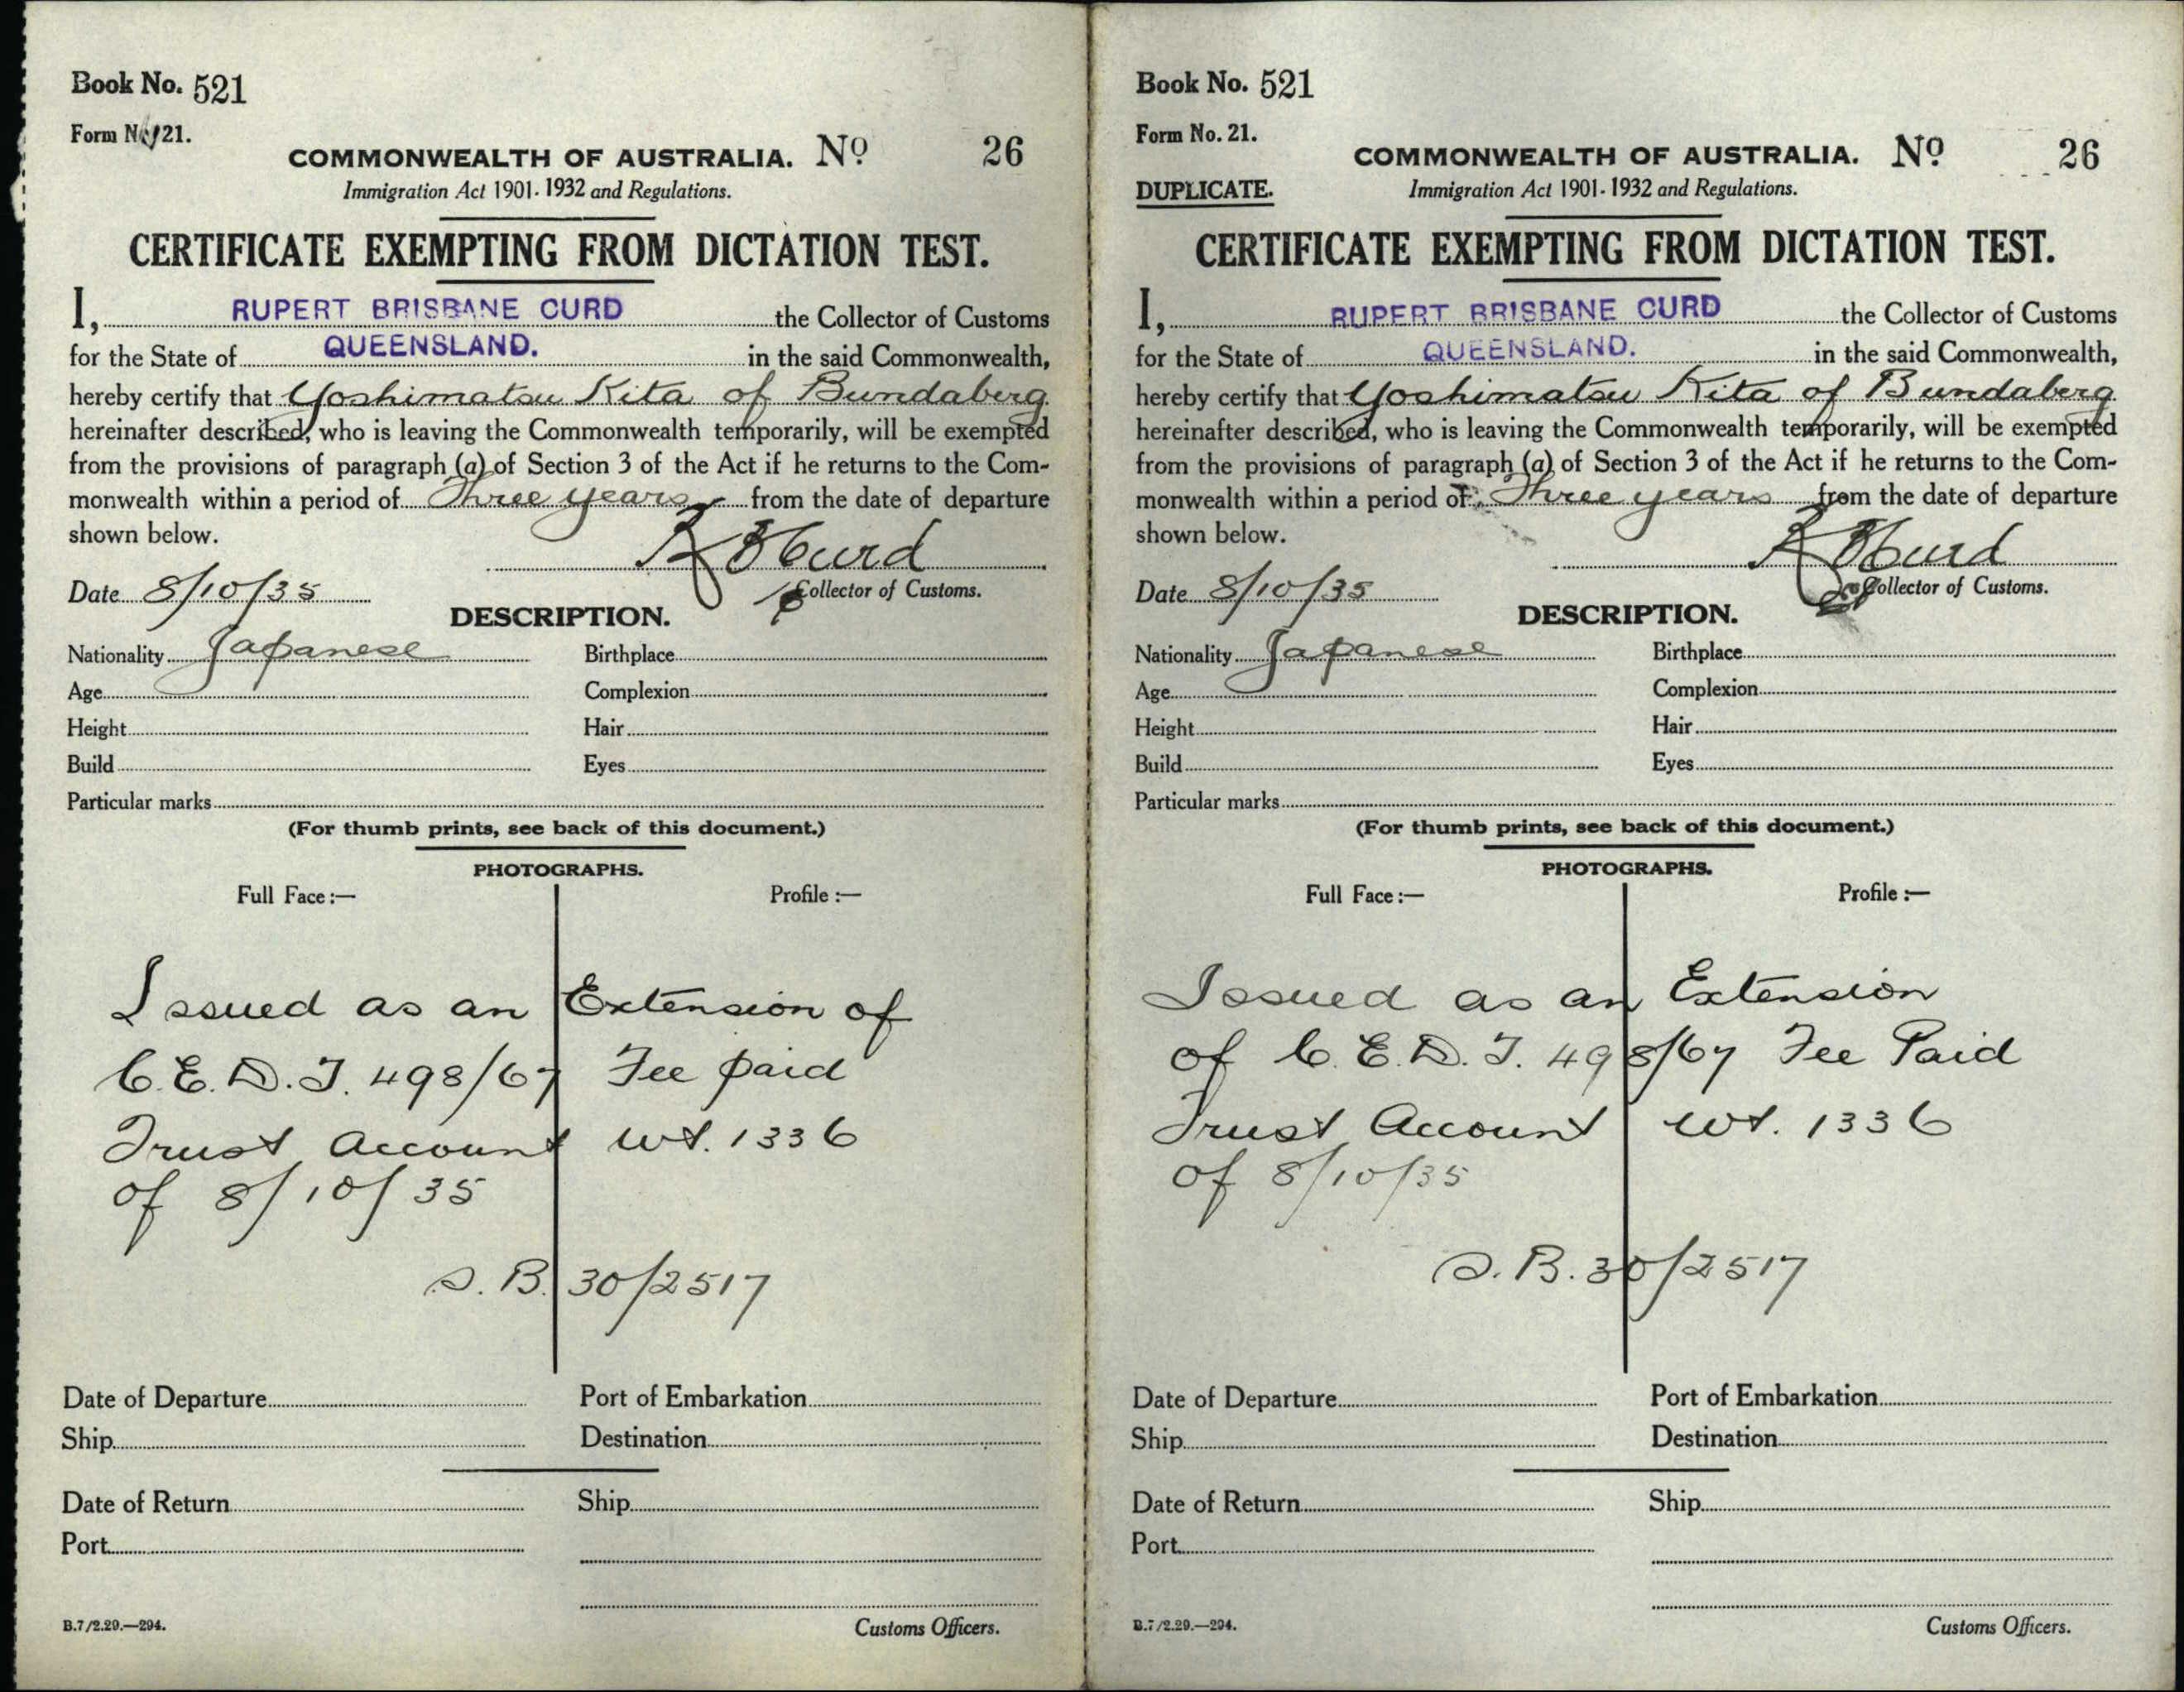 Book No. 521
Form No. 21.
COMMONWEALTH OF AUSTRALIA. No 26
Immigration Act 1901-1932 and Regulations.
CERTIFICATE EXEMPTING FROM DICTATION TEST.
I, RUPERT BRISBANE CURD the Collector of Customs
for the State of QUEENSLAND. in the said Commonwealth,
hereby certify that Yoshimatsu Kita of Bundaberg
hereinafter described, who is leaving the Commonwealth temporarily, will be exempted
from the provisions of paragraph (a) of Section 3 of the Act if he returns to the Com-
monwealth within a period of Three years from the date of departure
shown below.
R B Curd
Date 8/10/35 Collector of Customs.
DESCRIPTION.
Nationality Japanese Birthplace
Age Complexion
Height Hair
Build Eyes
Particular marks
(For thumb prints, see back of this document.)
PHOTOGRAPHS.
Full Face :— Profile :—
Issued as an Extension of
C.E.D.T. 498/67 Fee paid
Trust Account wt. 1336
of 8/10/35
S.B. 30/2517
Date of Departure Port of Embarkation
Ship Destination
Date of Return Ship
Port
B.7/2.29.—294. Customs Officers.
Book No. 521
Form No. 21.
COMMONWEALTH OF AUSTRALIA. No 26
DUPLICATE. Immigration Act 1901-1932 and Regulations.
CERTIFICATE EXEMPTING FROM DICTATION TEST.
I, RUPERT BRISBANE CURD the Collector of Customs
for the State of QUEENSLAND. in the said Commonwealth,
hereby certify that Yoshimatsu Kita of Bundaberg
hereinafter described, who is leaving the Commonwealth temporarily, will be exempted
from the provisions of paragraph (a) of Section 3 of the Act if he returns to the Com-
monwealth within a period of Three years from the date of departure
shown below.
R B Curd
Date 8/10/35 Collector of Customs.
DESCRIPTION.
Nationality Japanese Birthplace
Age Complexion
Height Hair
Build Eyes
Particular marks
(For thumb prints, see back of this document.)
PHOTOGRAPHS.
Full Face :— Profile :—
Issued as an Extension
of C.E.D.T. 498/67 Fee Paid
Trust Account wt. 1336
of 8/10/35
S.B. 30/2517
Date of Departure Port of Embarkation
Ship Destination
Date of Return Ship
Port
B.7/2.29.—294. Customs Officers.